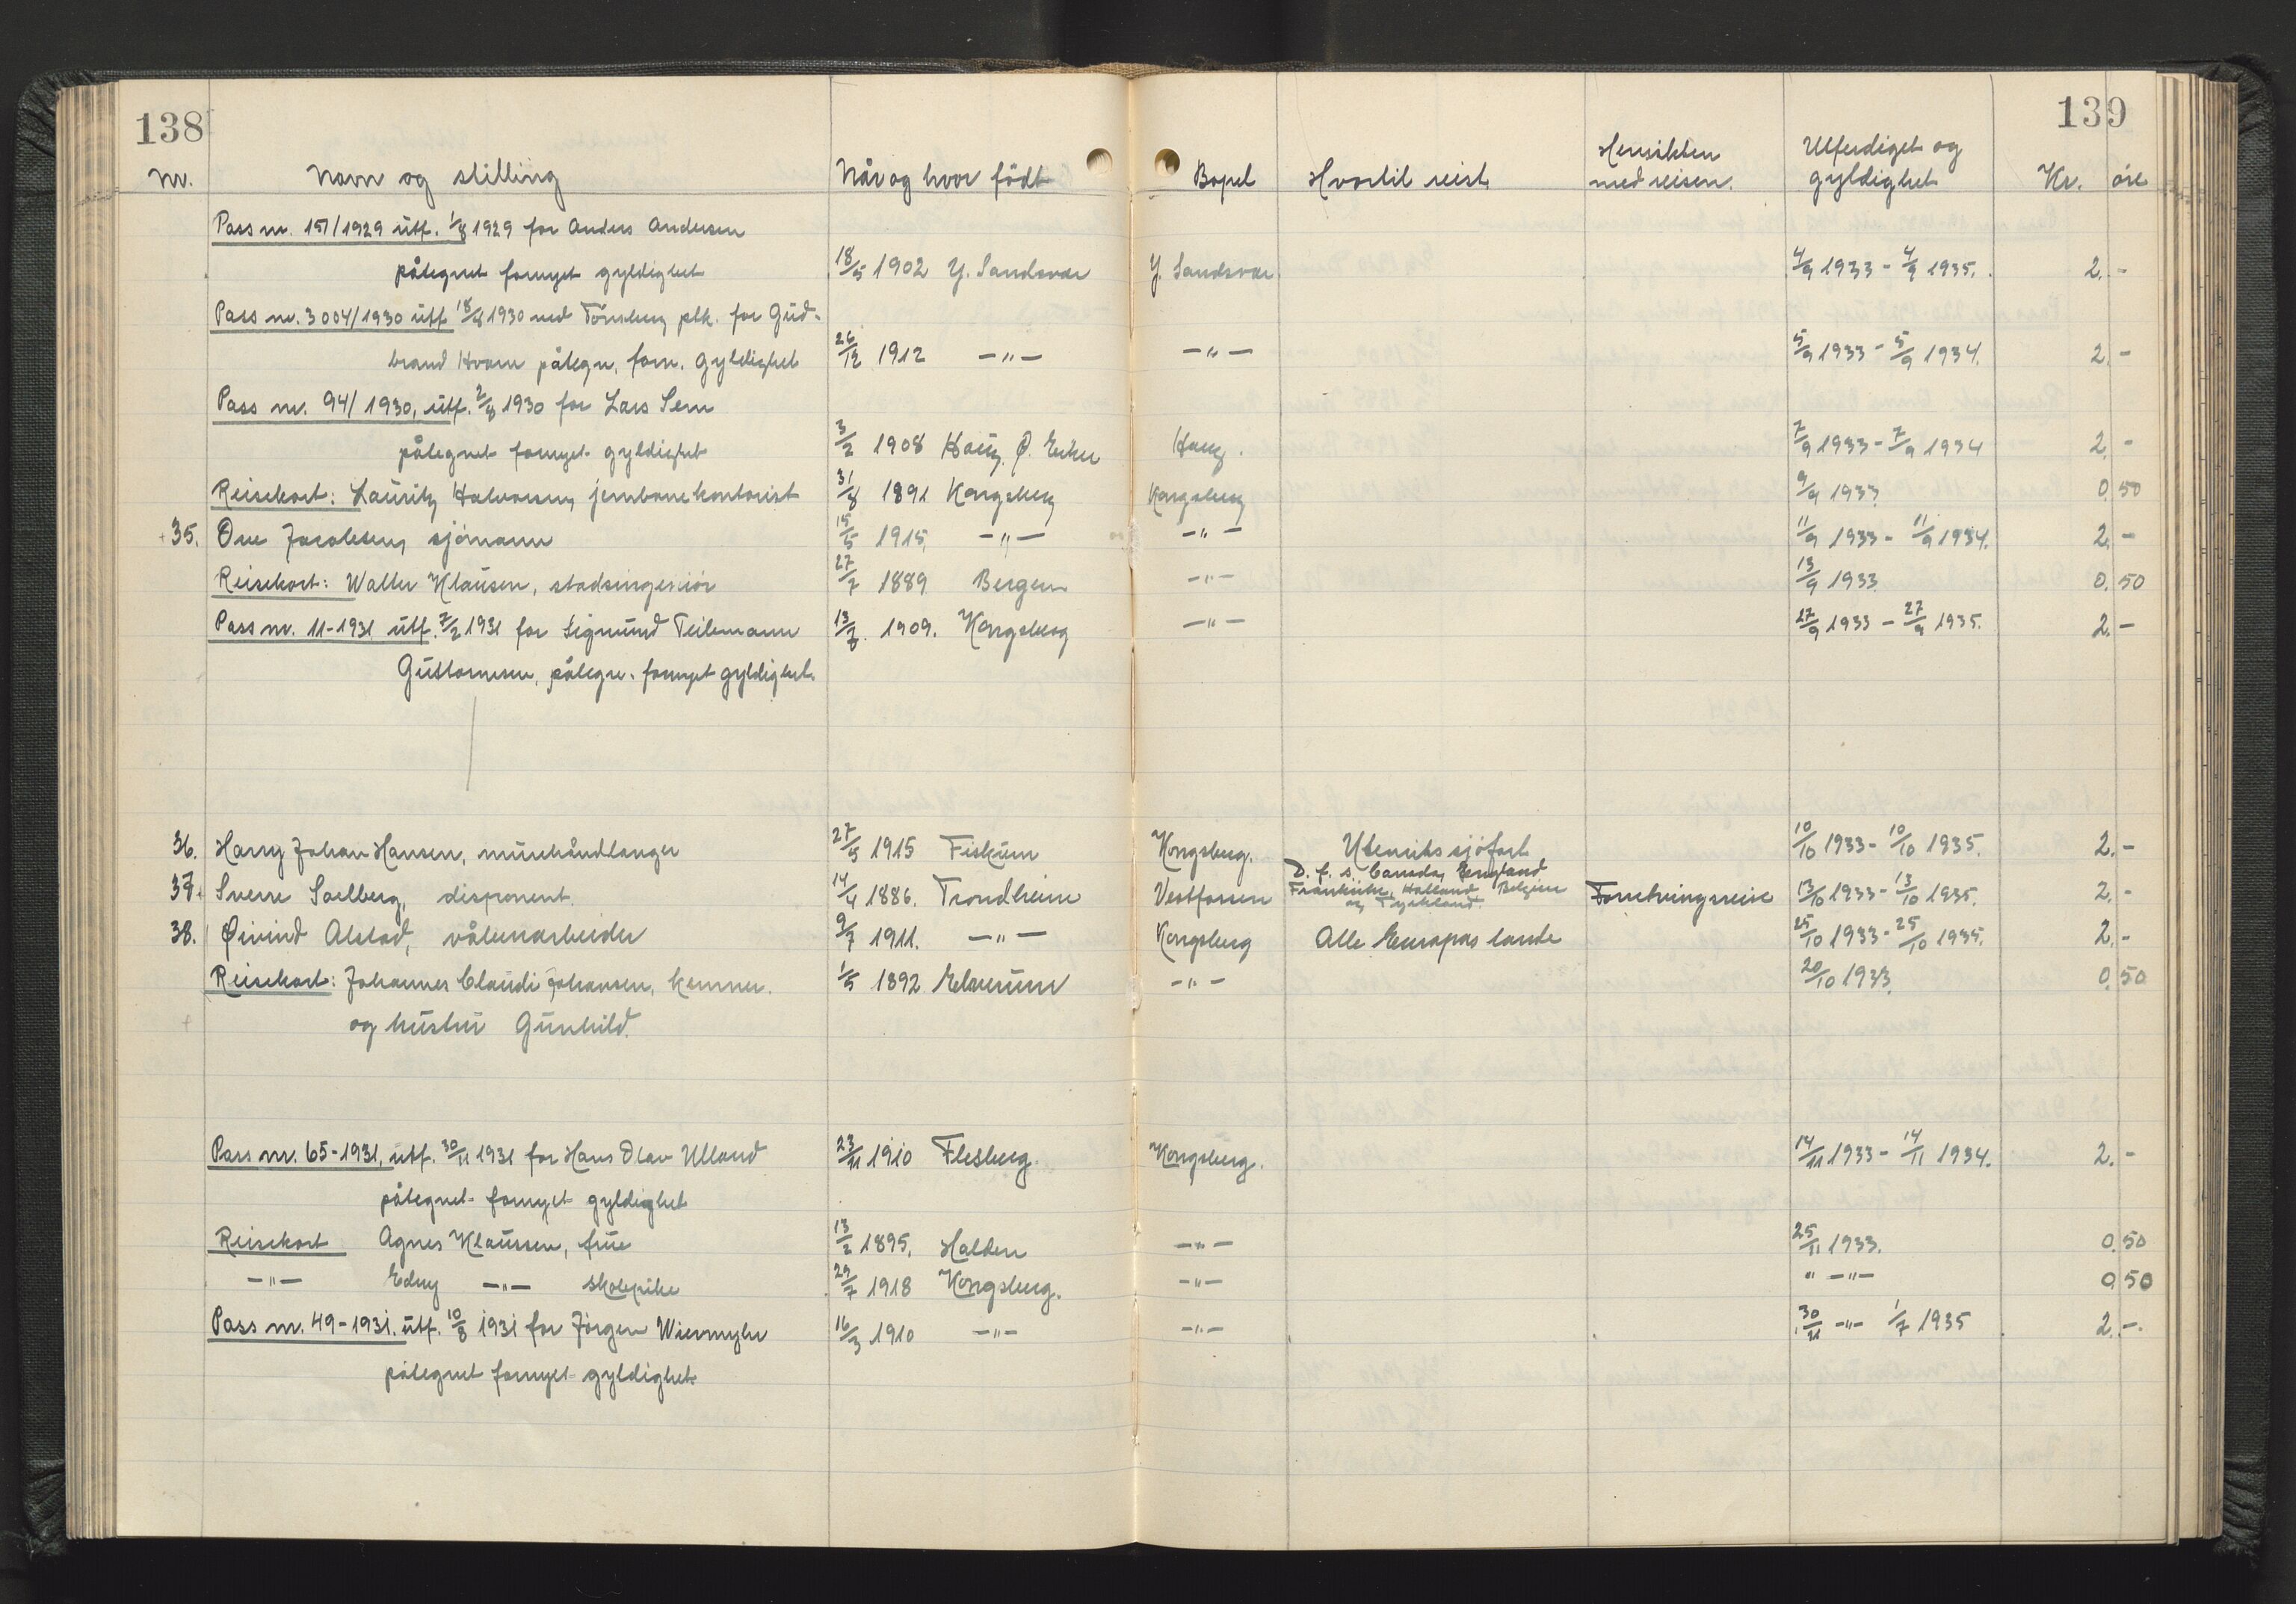 138 139
Nr. Navn og stilling Når og hvor födt Bopel Hvortil reist Hensikten med reisen. Utferdiget og gyldighet Kr. öre
Pass nr. 151/1929 utf. 1/8 1929 for Anders Andersen
påtegnet fornyet gyldighet 18/5 1902 Y. Sandsvær Y. Sandsvær 4/9 1933 - 4/9 1935. 2. -
Pass nr. 3004/1930 utf. 18/8 1930 ved Tönsberg plk. for Gud-
brand Hvam påtegn. forn. gyldighet 26/12 1912 -"- -"- 5/9 1933 - 5/9 1934. 2. -
Pass nr. 94/1930, utf. 2/8 1930 for Lars Sem
påtegnet fornyet gyldighet 3/2 1908 Haug, Ø. Eiker Haug. 7/9 1933 - 7/9 1934 2. -
Reisekort: Lauritz Halvorsen, jernbanekontorist 31/8 1891 Kongsberg Kongsberg 9/9 1933. 0. 50
35. Ove Jacobsen, sjömann 15/5 1915. -"- -"- 11/9 1933 - 11/9 1934. 2. -
Reisekort: Walter Klausen, stadsingeniör 27/7 1889 Bergen -"- 13/9 1933. 0. 50
Pass nr. 11-1931 utf. 7/2 1931 for Sigmund Teilemann 13/8. 1909. Kongsberg -"- 27/9 1933 - 27/9 1935. 2. -
Guttormsen, påtegn. fornyet gyldighet.
36. Harry Johan Hansen, murehåndlanger 27/5 1915 Fiskum Kongsberg. Utenriks sjöfart 10/10 1933 - 10/10 1935. 2. -
37. Sverre Saelberg, disponent. 14/4 1886. Trondheim Vestfossen D. f. s. Canada, England Frankrike, Holland Belgien og Tyskland. Forretningsreise 13/10 1933 - 13/10 1935. 2. -
38. Øivind Alstad, våbenarbeider 9/7 1911. -"- Kongsberg Alle Europas lande 25/10 1933 - 25/10 1935. 2. -
Reisekort: Johannes Claudi Johansen, kemner. 1/5 1892 Elverum -"- 20/10 1933. 0. 50
og hustru Gunhild.
Pass nr. 65-1931, utf. 30/11 1931 for Hans Olav Ulland 23/11 1910 Flesberg. Kongsberg. 14/11 1933 - 14/11 1934. 2. -
påtegnet fornyet gyldighet
Reisekort Agnes Klaussen, frue 13/2 1895. Halden -"- 25/11 1933. 0. 50
-"- Edny -"- skolepike 29/7 1918 Kongsberg. -"- " -"- 0. 50
Pass nr. 49-1931. utf. 10/8 1931 for Jörgen Wiermyhr 16/3 1910 -"- -"- 30/11 -"- 1/7 1935 2. -.
påtegnet fornyet gyldighet.